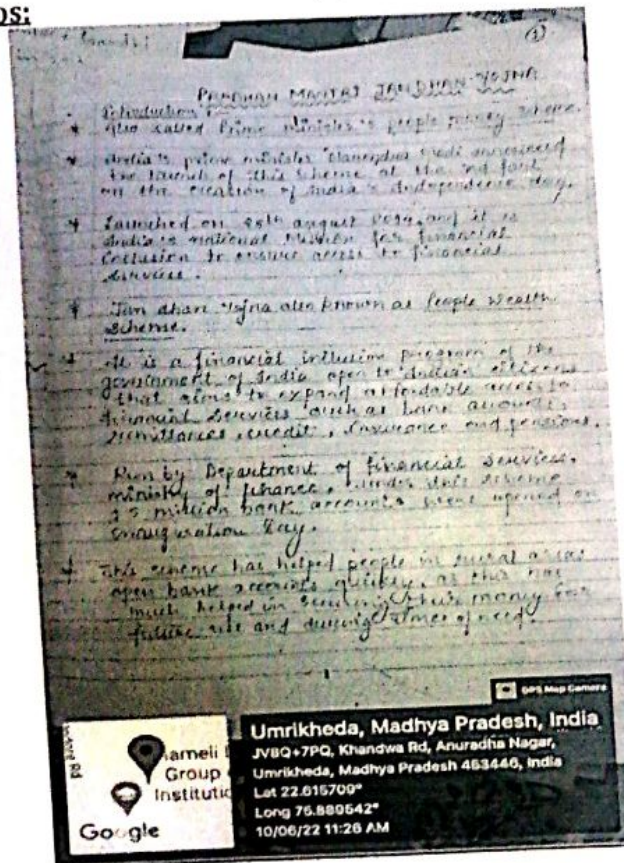 os:
Gandhi
(1)
PRADHAN MANTRI JANDHAN YOJNA
Introduction :
* Also called Prime minister's people money scheme.
* India's prime minister Narendra Modi announced
the launch of this scheme at the red fort
on the occasion of India's Independence day.
* Launched on 28th august 2014, and it is
India's national mission for financial
inclusion to ensure access to financial
services.
* Jan dhan Yojna also known as People wealth
scheme.
* It is a financial inclusion program of the
government of India open to Indian citizens
that aims to expand affordable access to
financial services such as bank accounts,
remittances, credit, insurance and pensions.
* Run by Department of financial services,
ministry of finance, under this scheme
15 million bank accounts were opened on
inauguration day.
* This scheme has helped people in rural areas
open bank accounts quickly, as this has
much helped in securing their money for
future use and during times of need.
GPS Map Camera
Indore Rd
ameli
Group
Institutio
Google
Umrikheda, Madhya Pradesh, India
JV8Q+7PQ, Khandwa Rd, Anuradha Nagar,
Umrikheda, Madhya Pradesh 453446, India
Lat 22.615709°
Long 75.889542°
10/06/22 11:26 AM